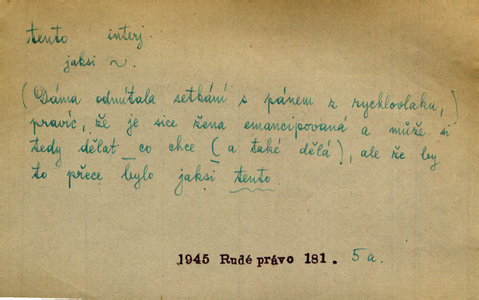 tento interj.
jaksi ~.
(Dáma odmítala setkání s pánem z rychlovlaku,)
pravíc, že je sice žena emancipovaná a může si
tedy dělat co chce (a také dělá), ale že by
to přece bylo jaksi tento.
1945 Rudé právo 181. 5a.